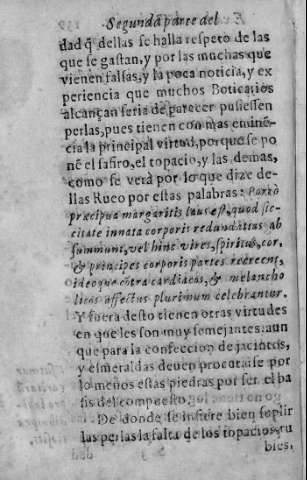 Segunda parte del
dad q̃ dellas se halla respeto de las
que se gastan, y por las muchas que
vienen falsas, y la poca noticia, y ex
periencia que muchos Boticarios
alcançan seria de parecer pusiessen
perlas, pues tienen con mas eminē-
cia la principal virtud, porque se po
nē el safiro, el topacio, y las demas,
como se verá por lo que dize de-
llas Rueo por estas palabras: Porrò
præcipua margaritis laus est, quod sic-
citate innata corporis redunditias ab
sumunt, vel hinc vires, spiritus, cor,
& principes corporis partes recreent,
ideoque cõtra cardiacos, & melancho
licos affectus plurimum celebrantur.
Y fuera desto tienen otras virtudes
en que les son muy semejantes: aun
que para la confeccion de jacintos,
y esmeraldas deuen procurarse por
lo menos estas piedras por ser el ba
sis del compuesto.
De donde se infiere bien suplir
las perlas la falta de los topacios, ru
bies.